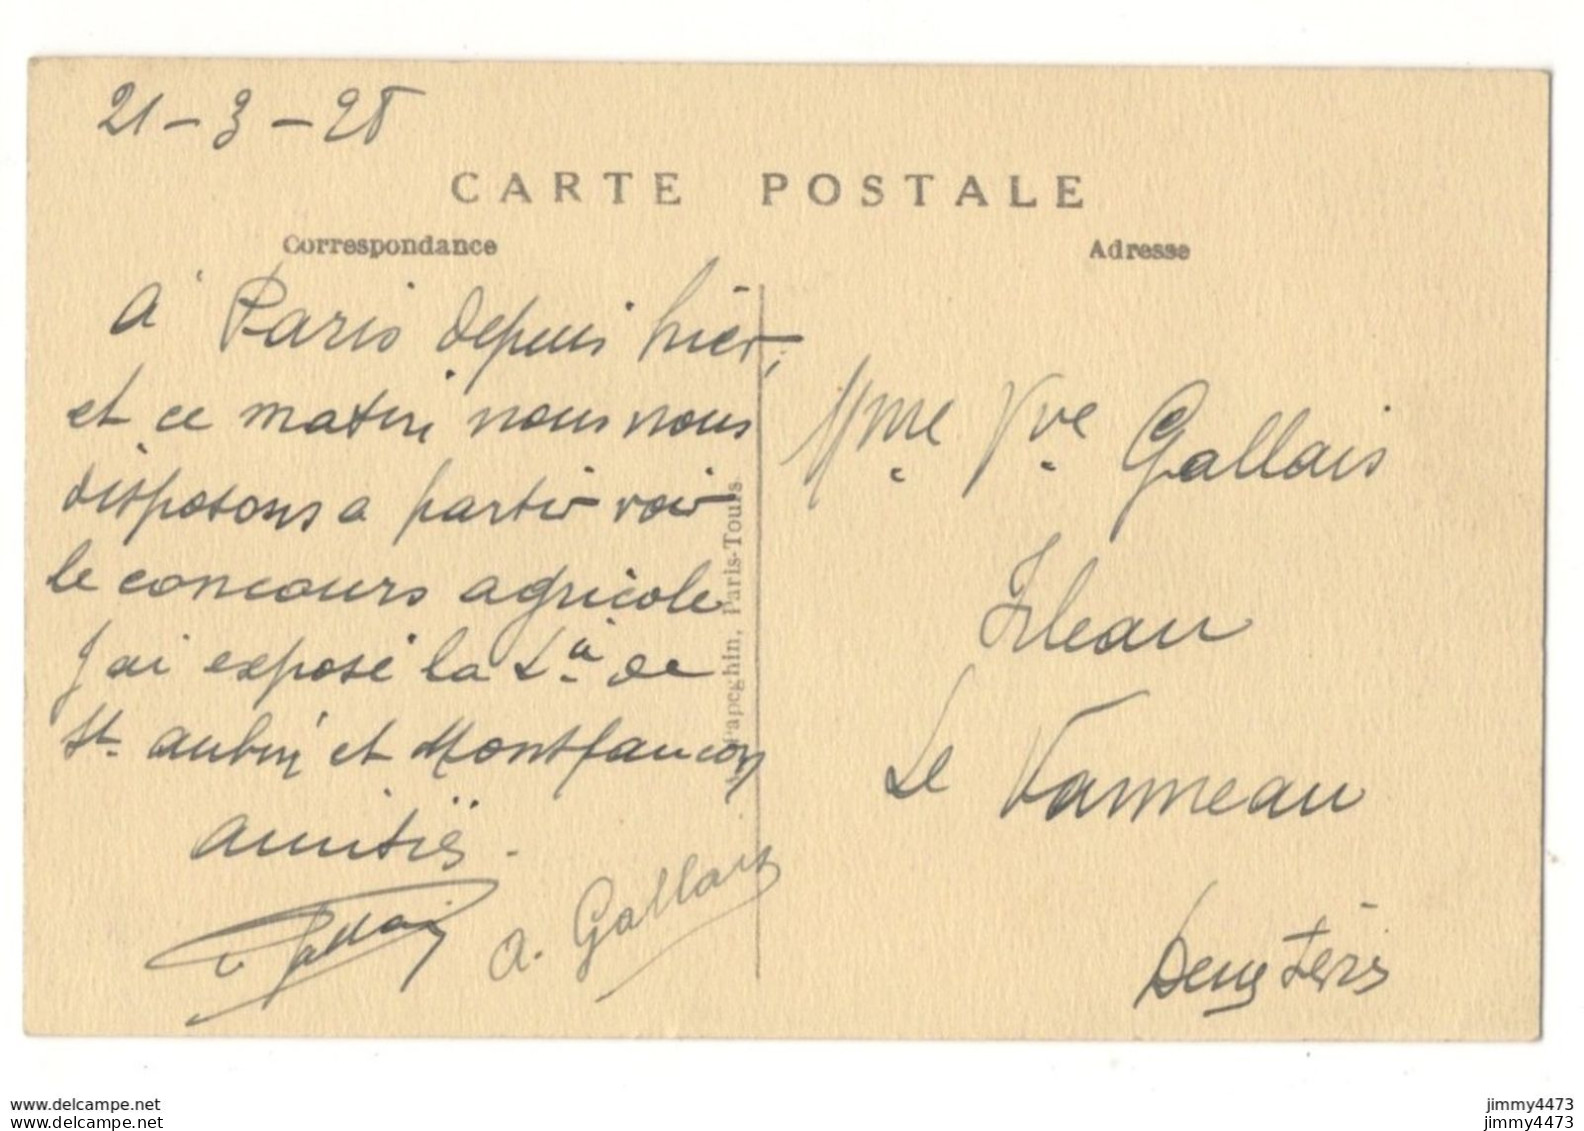 21-3-28
CARTE POSTALE
Correspondance
Adresse
A Paris depuis hier,
et ce matin nous nous
disposons a partir voir
le concours agricole
J'ai exposé la
de
St. aubin et Montfaucon
amitiés.
Gallais
A. Gallais
Papeghin, Paris-Tours
Mme Vve Gallais
Irleau
Le Vanneau
Deux Sèvres
www.delcampe.net
www.delcampe.net
jimmy4473
jimmy4473